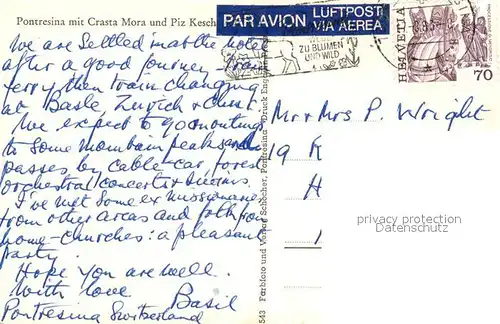 Pontresina mit Crasta Mora und Piz Kesch
PAR AVION LUFTPOST
VIA AEREA
ZU BLUMEN
UND WILD
HELVETIA
70
We are Settled in at the hotel
after a good journey
ferry then train changing
at Basle Zurich & Chur
We expect to go on outings
to Some mountain peaks and
passes by cable-car, forest
orchestral concerts &
I've met Some ex missionaries
from other areas and folk from
home-churches: a pleasant
party.
Hope you are well.
With love Basil
Pontresina Switzerland
Mr & Mrs P. Wright
19 K
H
privacy protection
Datenschutz
543 Farbfoto und Verlag Schöcher, Pontresina Druck